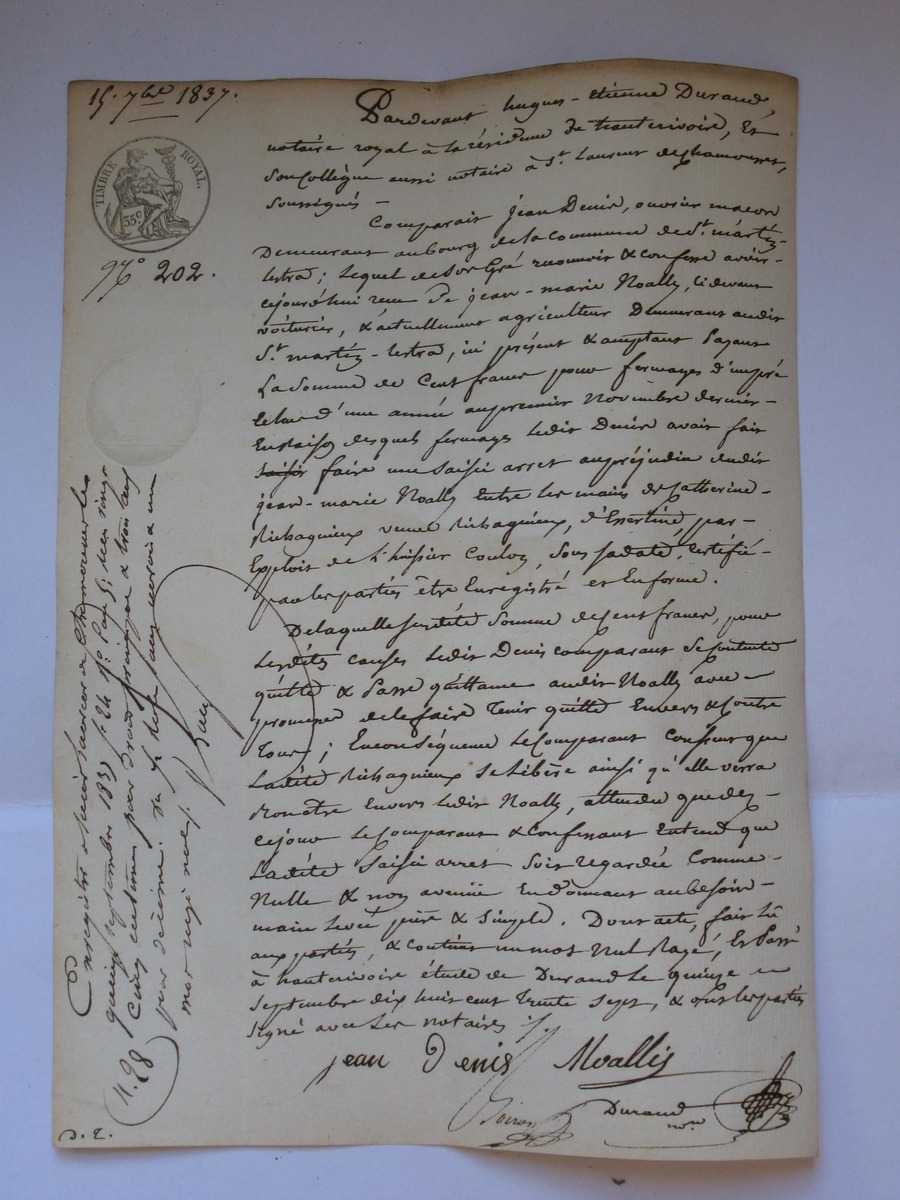 15. 7bre 1837.
TIMBRE ROYAL.
35.c
N.° 202.
Pardevant hugues-etienne Durand,
notaire royal à la résidence de hauterivoire, Et
Son Collègue aussi notaire à St. Laurent de Chamousset,
Soussignés –
Comparait jean Denis, ouvrier macon
Demeurant au bourg de la commune de St. martin-
lestra; lequel de Son Gré reconnoit & confesse avoir-
cejourd'hui recu De jean-marie Noally, Cidevant
voiturier, & actuellement agriculteur Demeurant audit
St. martin-lestra, ici présent & acceptant payant
La Somme de Cent francs pour fermages
d'une année aupremier Novembre dernier-
En raison desquels fermages ledit Denis avait fait
saisir faire une Saisie arret aupréjudice dudit
jean-marie Noally Entre les mains de Catherine-
Richagnieux veuve Richagnieux, d'Essertine, par-
Exploit de l'huissier Couloy, Sous Sadate, Certifié-
par les parties être Enrégistré et Enforme.
De laquelle Susdite Somme de Cent francs, pour
Lesdites causes ledit Denis comparant Se Contente
quitte & Passe quittance audit Noally avec-
promesse de le faire Tenir quitte Envers & Contre
Tous; En conséquence Le Comparant Consent que
Ladite Richagnieux Se Libère ainsi qu'elle verra
Bon être Envers ledit Noally, attendu que dez-
cejour le Comparant & Confessant Entend que
Ladite Saisie arret Soit regardée Comme-
Nulle & non avenüe En donnant aubesoin-
main levée pure & Simple. Dont acte, fait Lû
aux parties, & contient un mot Nul Rayé, Et Passé
à hauterivoire étude de Durand Le quinze
Septembre dix huit cent Trente Sept, & ont les parties
Signé avec Les notaires
jean Denis Noally
Boiron Durand
nore
Enregistré à Chamousset le
quinze septembre 1837 f.° 24 r.°
Cinq centimes pour
pour décime.
mot rayé nul.
11. 98
D. E.